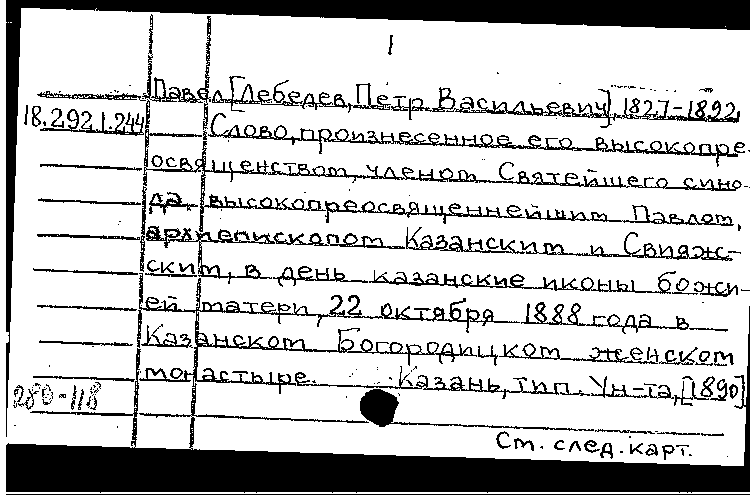 1
Павел [Лебедев, Петр Васильевич], 1827-1892.
18.292.1.244 Слово, произнесенное его высокопре-
освященством, членом Святейшего сино-
да, высокопреосвященнейшим Павлом,
архиепископом Казанским и Свияж-
ским, в день казанские иконы божи-
ей матери, 22 октября 1888 года в
Казанском Богородицком женском
монастыре. Казань, тип. Ун-та, [1890]
280-118
См. след. карт.